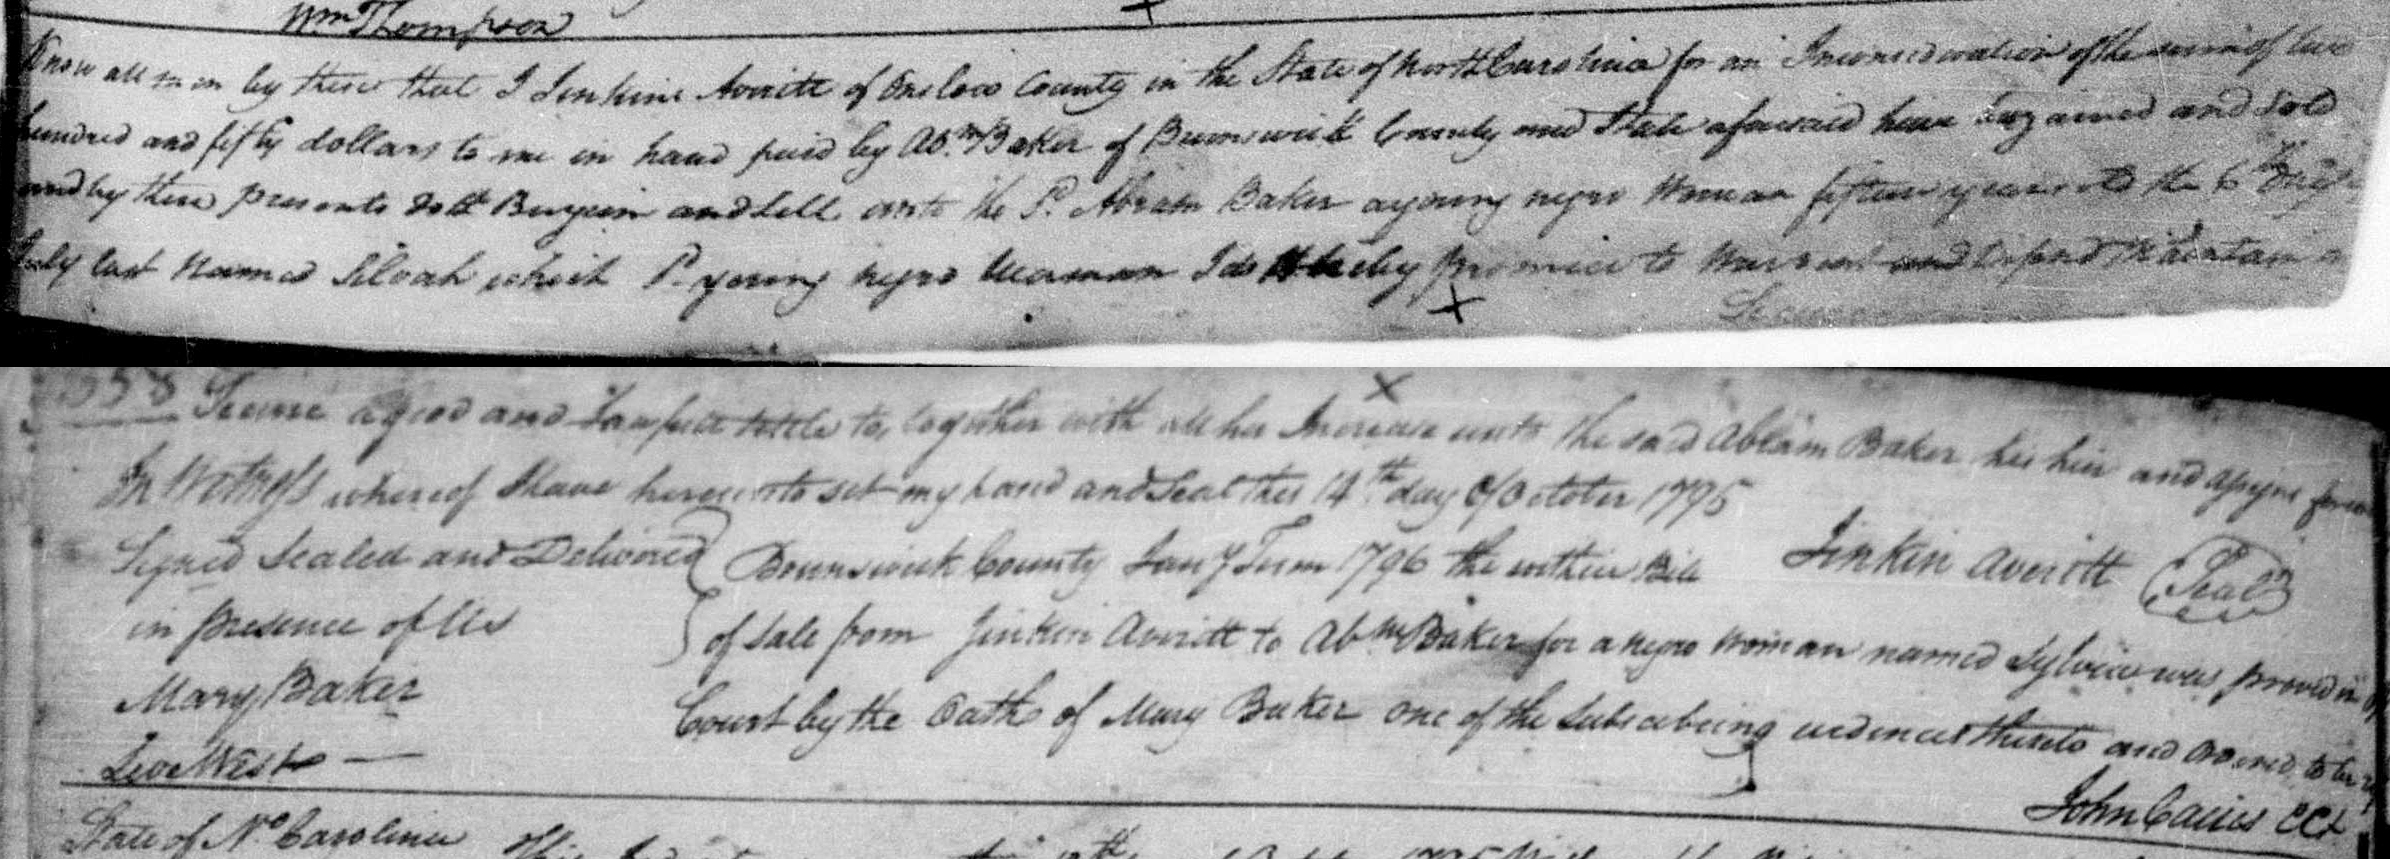 Wm Thompson
Know all men by these that I Jenkins Averitt of Onslow County in the State of North Carolina for an Inconsideration of the sum of two
hundred and fifty dollars to me in hand paid by Abm Baker of Brunswick County and State aforesaid have bargained and Sold
and by these presents doth Bargain and Sell unto the Sd. Abram Baker a young negro Woman fifteen years old the 6th
July last Named Silvah which Sd. young negro Woman I do Hereby promice to Warrent and Defend Maintain
Secure
358 Secure a good and Lawfull tittle to, together with all her Increase unto the said Abram Baker his heir and assigns
In Witness whereof I have hereunto set my hand and Seal this 14th day of October 1795
Signed Sealed and Delivered
in presence of Us
Mary Baker
West
Jinkin Averitt (Seal)
Brunswick County Jany Term 1796 the within Bill
of Sale from Jinkin Averitt to Abm Baker for a negro Woman named Sylvia was proved in
Court by the Oath of Mary Baker one of the Subscribeing evidences thereto and Ordered to be
John Caines CCt
State of No Carolina